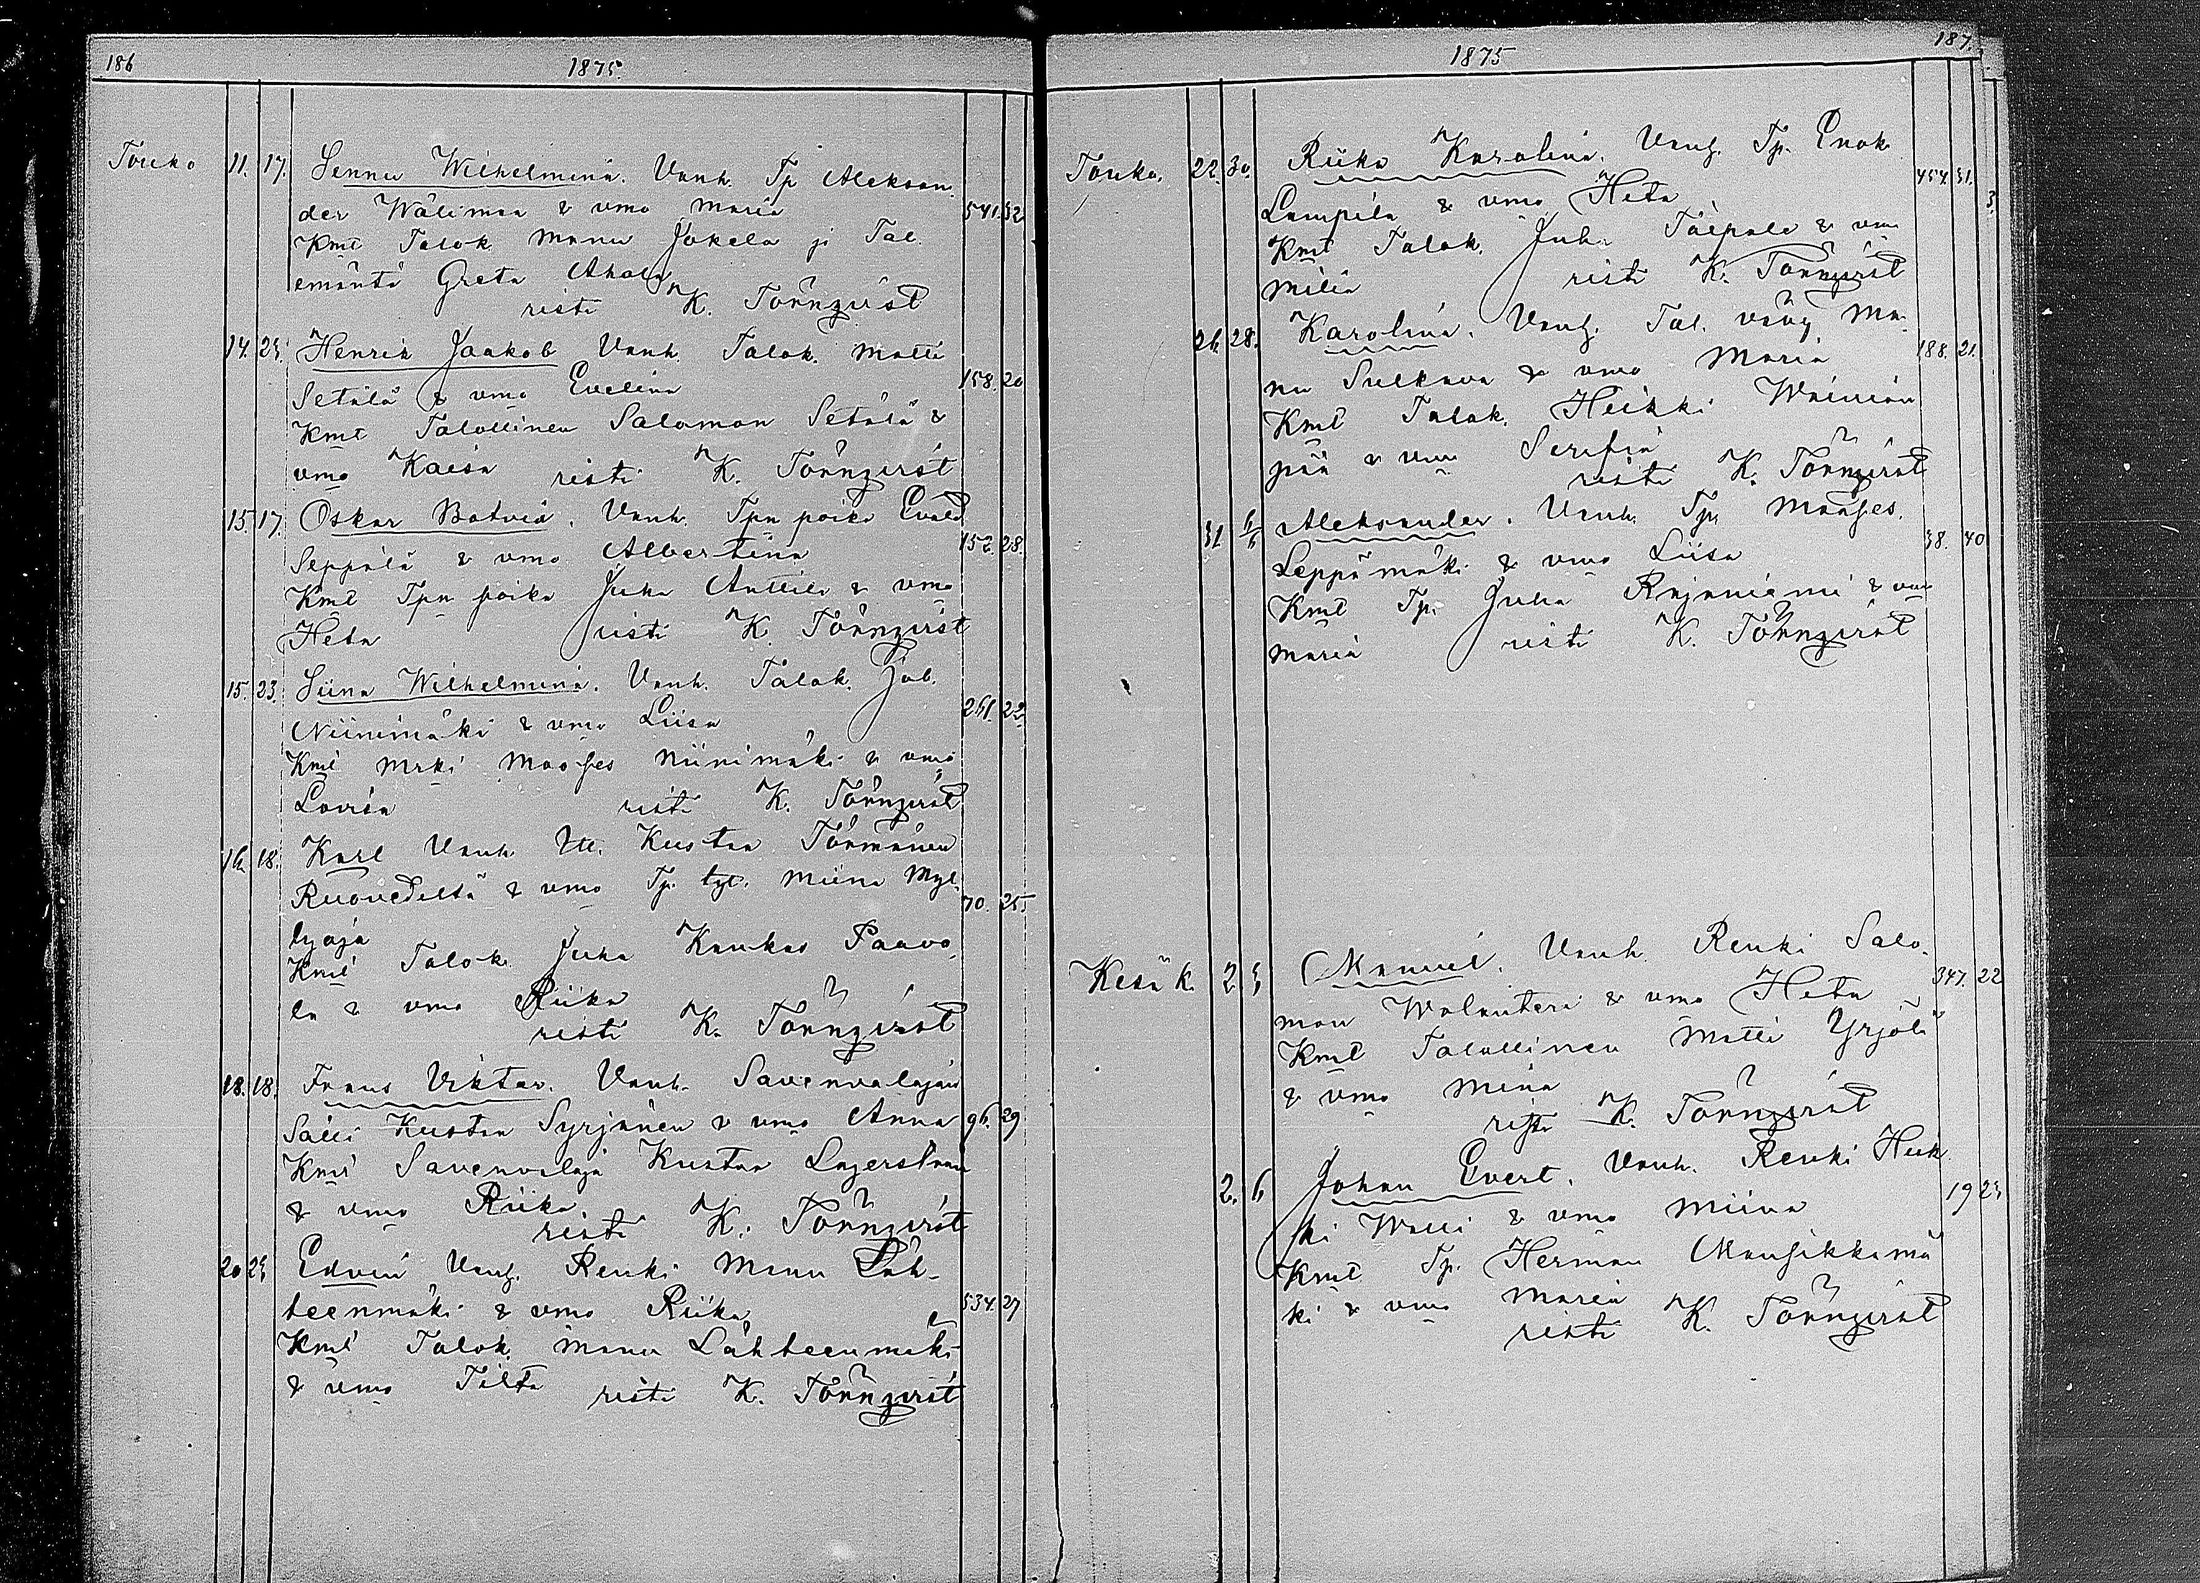 186
1875.
Touko 11. 17. Sennu Wilhelmina. Vanh. Tp Aleksan-
der Wälimaa & vmo Maria 541. 32
Kml Talok. Manu Jokela ja Tal.
emäntä Greta Ahola
risti K. Törnqvist
14. 23. Henrik Jaakob Vanh. Talok. Matti
Setälä & vmo Evelina 158 20
Kml Talollinen Salomon Setälä &
vmo Kaisa risti K. Törnqvist
15. 17. Oskar Botvid. Vanh. Tpn poika Evald
Seppälä & vmo Albertina 152. 28.
Kml Tpn poika Juha Anttila & vmo
Heta risti K. Törnqvist
15. 23. Siina Wilhelmina. Vanh. Talok. Job.
Niinimäki & vmo Liisa 261. 22
Kml Mrki Mooses Niinimäki & vmo
Lovisa risti K. Törnqvist
16. 18. Karl Vanh. Kustaa Törmänen
Ruovedeltä & vmo Tp. tyt. Miina Myl- 70. 25.
lyoja
Kml Talok. Juha Kaukas Paavo-
la & vmo Riika
risti K. Törnqvist
18. 18. Frans Viktor. Vanh. Savenvalajan
Sälli Kustaa Syrjänen & vmo Anna 96. 29
Kml Savenvalaja Kustaa Lagerstram
& vmo Riika
risti K. Törnqvist
20 23 Edvin Vanh. Renki Manu Läh-
teenmäki & vmo Riika 534. 27
Kml Talok. Manu Lähteenmäki
& vmo Tilta risti K. Törnqvist
187.
1875
Touko. 22. 30. Riika Karolina. Vanh. Tp. Enok
Lampila & vmo Heta 454. 31. 3.
Kml Talok. Juha Taipale & vmo
Milia risti K. Törnqvist
26. 28. Karolina. Vanh. Tal. vävy Ma-
nu Sulkava & vmo Maria 188. 21.
Kml Talok. Heikki Wainion
pää & vmo Serafia
risti K. Törnqvist
31 6/6 Aleksander. Vanh. Tp. Mooses
Leppämäki & vmo Liisa 38. 40
Kml Tp. Juha Rajaniemi & vmo
Maria risti K. Törnqvist
Kesäk. 2. 3 Manuel. Vanh. Renki Salo-
mon Walanteri & vmo Heta 347. 22
Kml Talollinen Matti Yrjölä
& vmo Mina
risti K. Törnqvist
2. 6. Johan Evert. Vanh. Renki Heik
ki Walli & vmo Miina 19 23
Kml Tp. Herman Mansikkamä
ki & vmo Maria
risti K. Törnqvist